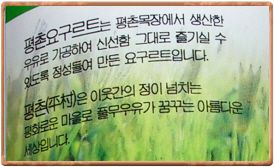 평촌요구르트는 평촌목장에서 생산한
우유로 가공하여 신선함 그대로 즐기실 수
있도록 정성들여 만든 요구르트입니다.
평촌(平村)은 이웃간의 정이 넘치는
평화로운 마을로 풀무우유가 꿈꾸는 아름다운
세상입니다.